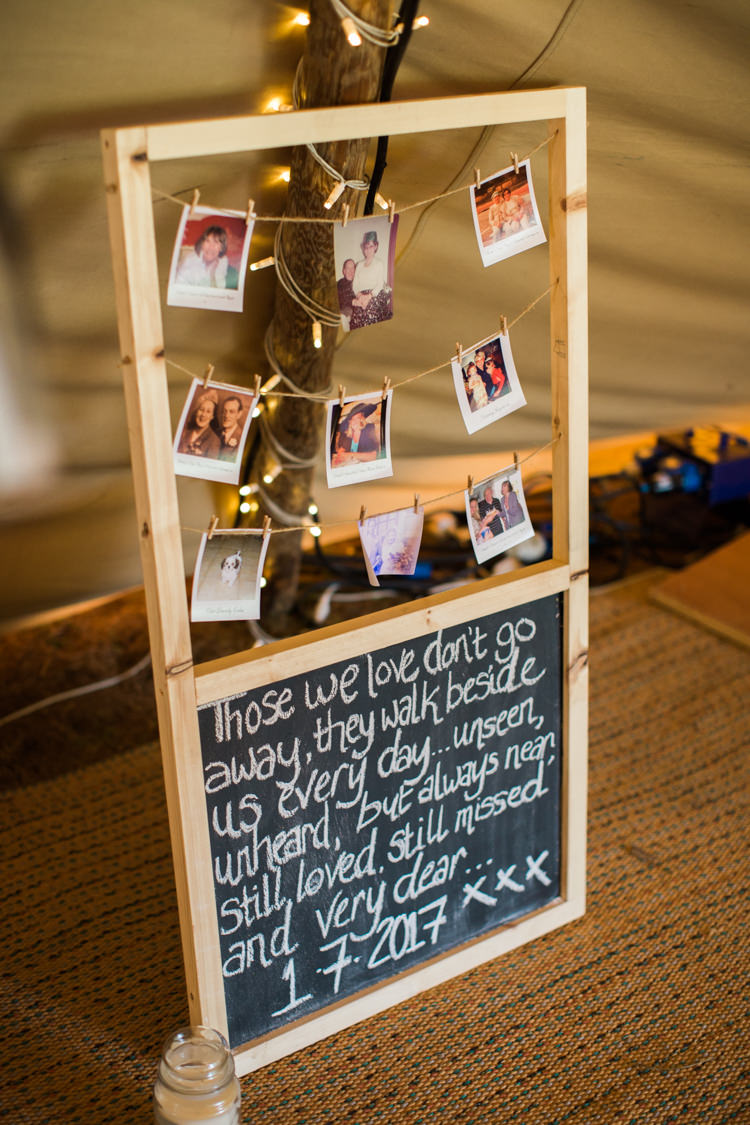 Those we love don't go
away, they walk beside
us every day... unseen,
unheard, but always near,
still loved. still missed,
and very dear... xxx
1.7.2017